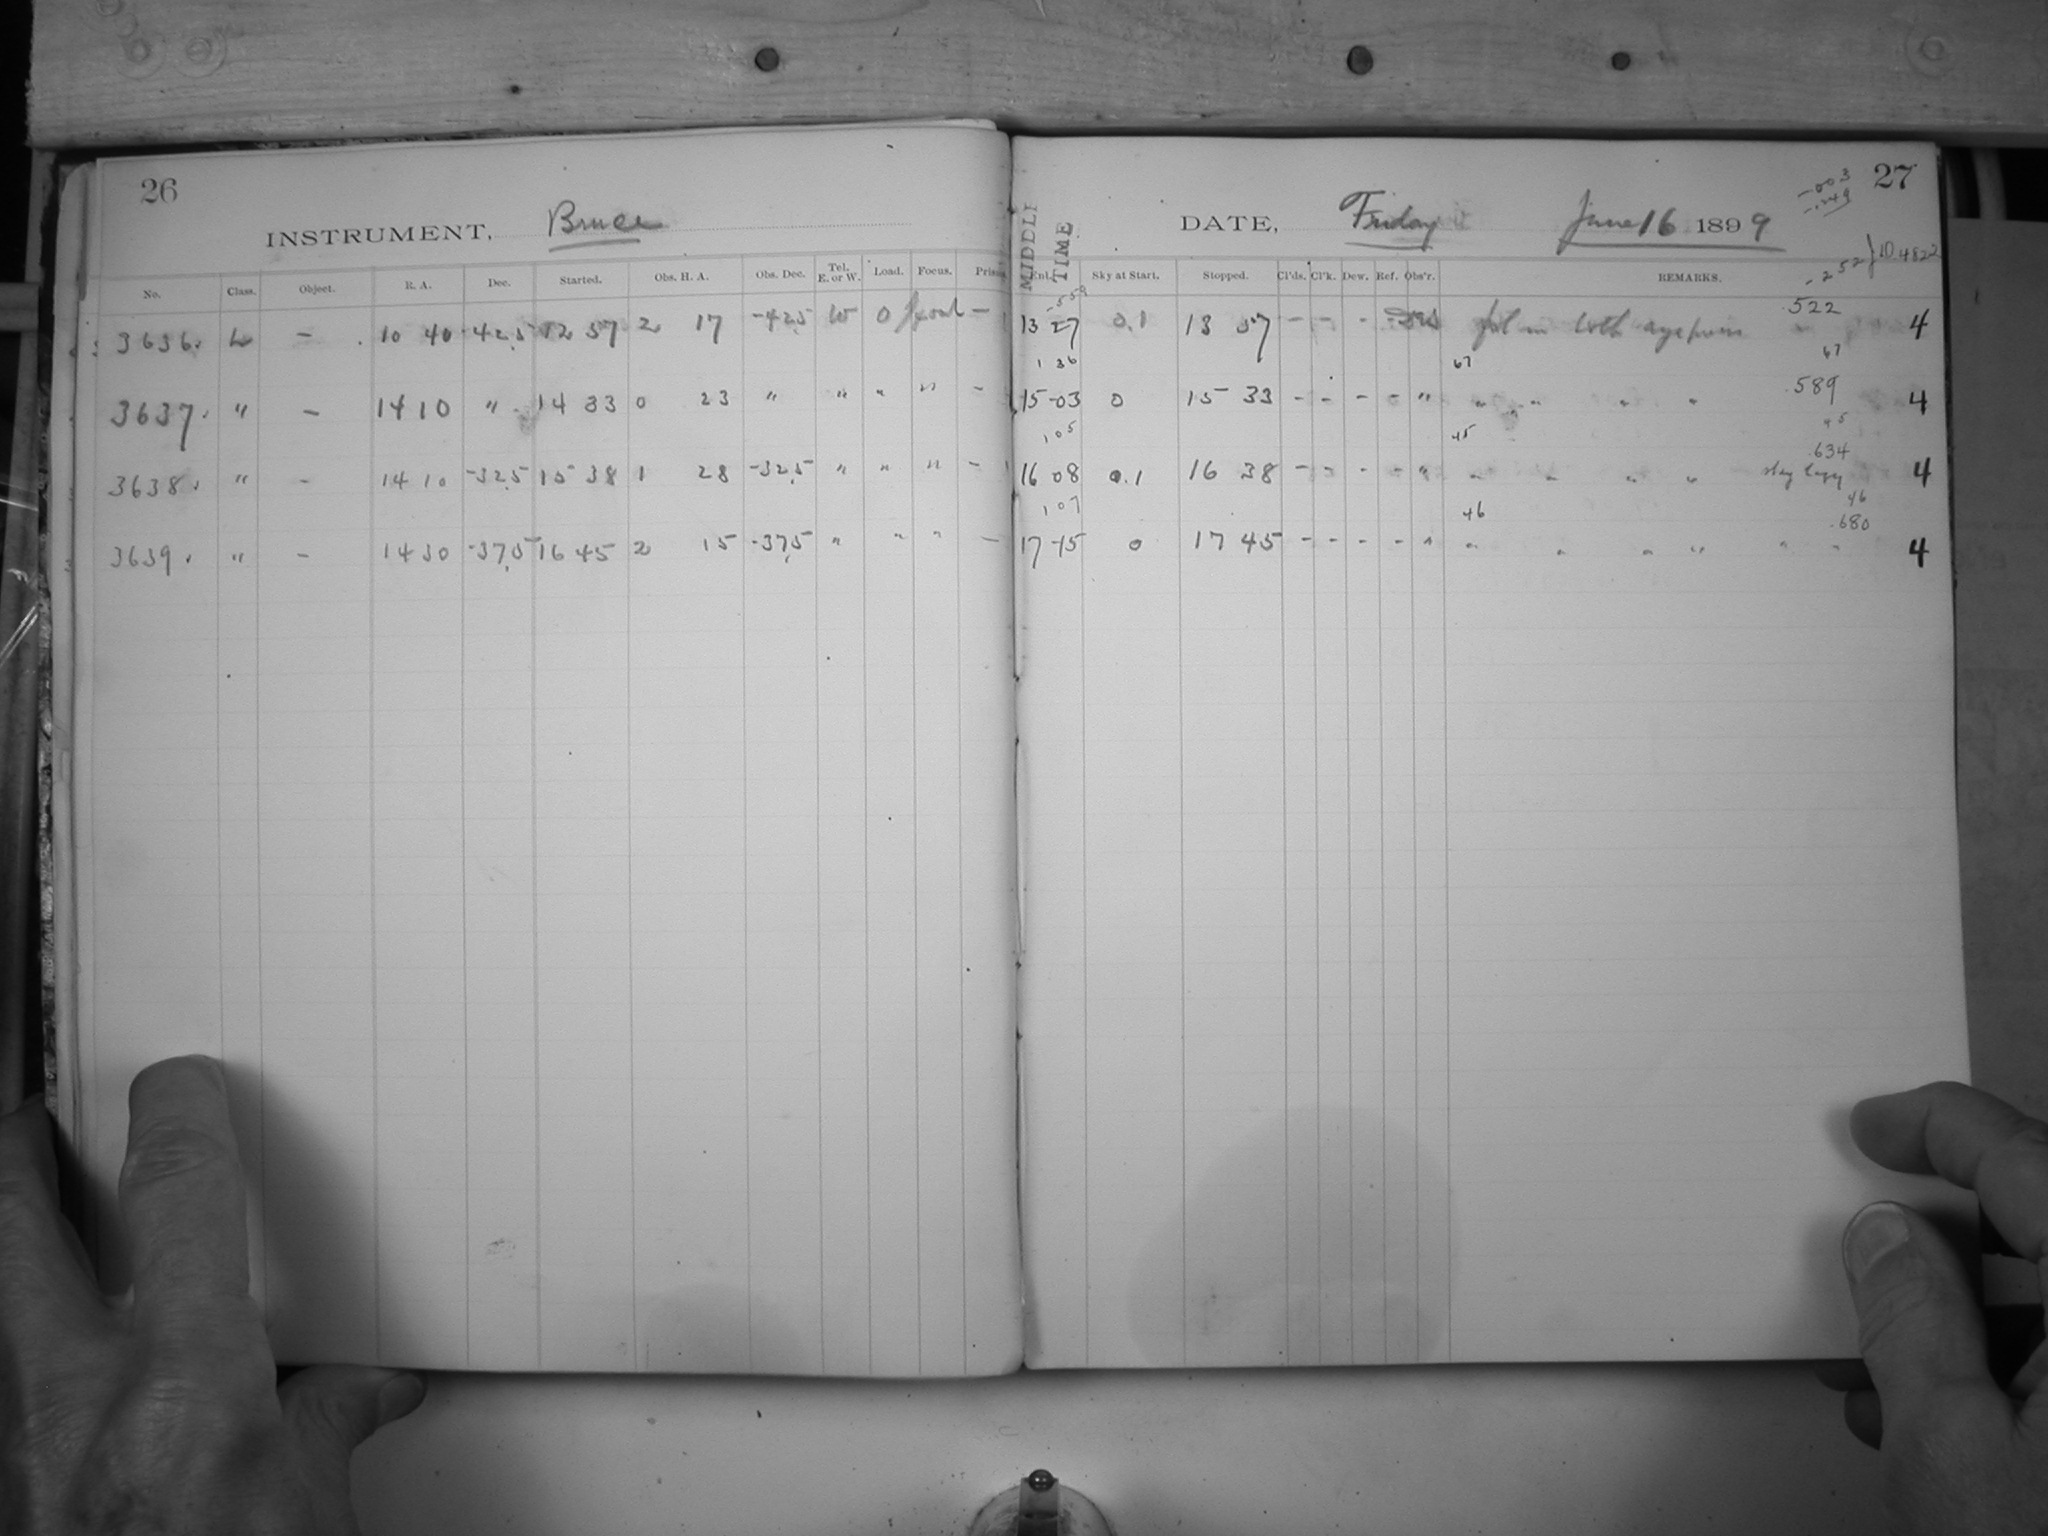 26
INSTRUMENT, Bruce
No. Class. Object. R. A. Dec. Started. Obs. H. A. Obs. Dec. Tel. E. or W. Load. Focus.
3636. L - 10 40 -42.5 12 57 2 17 -42.5 W 0 -
3637. " - 14 10 " 14 33 0 23 " " " " -
3638. " - 14 10 -32.5 15 38 1 28 -32.5 " " " -
3639. " - 14 30 -37.5 16 45 2 15 -37.5 " " " -
-.003 27
-.249
DATE, Friday June 16 1899
-252 } 10.4822
MIDDLE TIME Sky at Start. Stopped. Cl'ds. Cl'k. Dew. Ref. Obs'r. REMARKS.
-559 .522
13 27 0.1 13 57 - - - - 4
1 36 67 67
.589
15 03 0 15 33 - - - - " " " " " 4
1 05 45 45
.634
16 08 0.1 16 38 - - - - " " " " " 4
1 07 46 46
.680
17 15 0 17 45 - - - - " " " " " " " 4